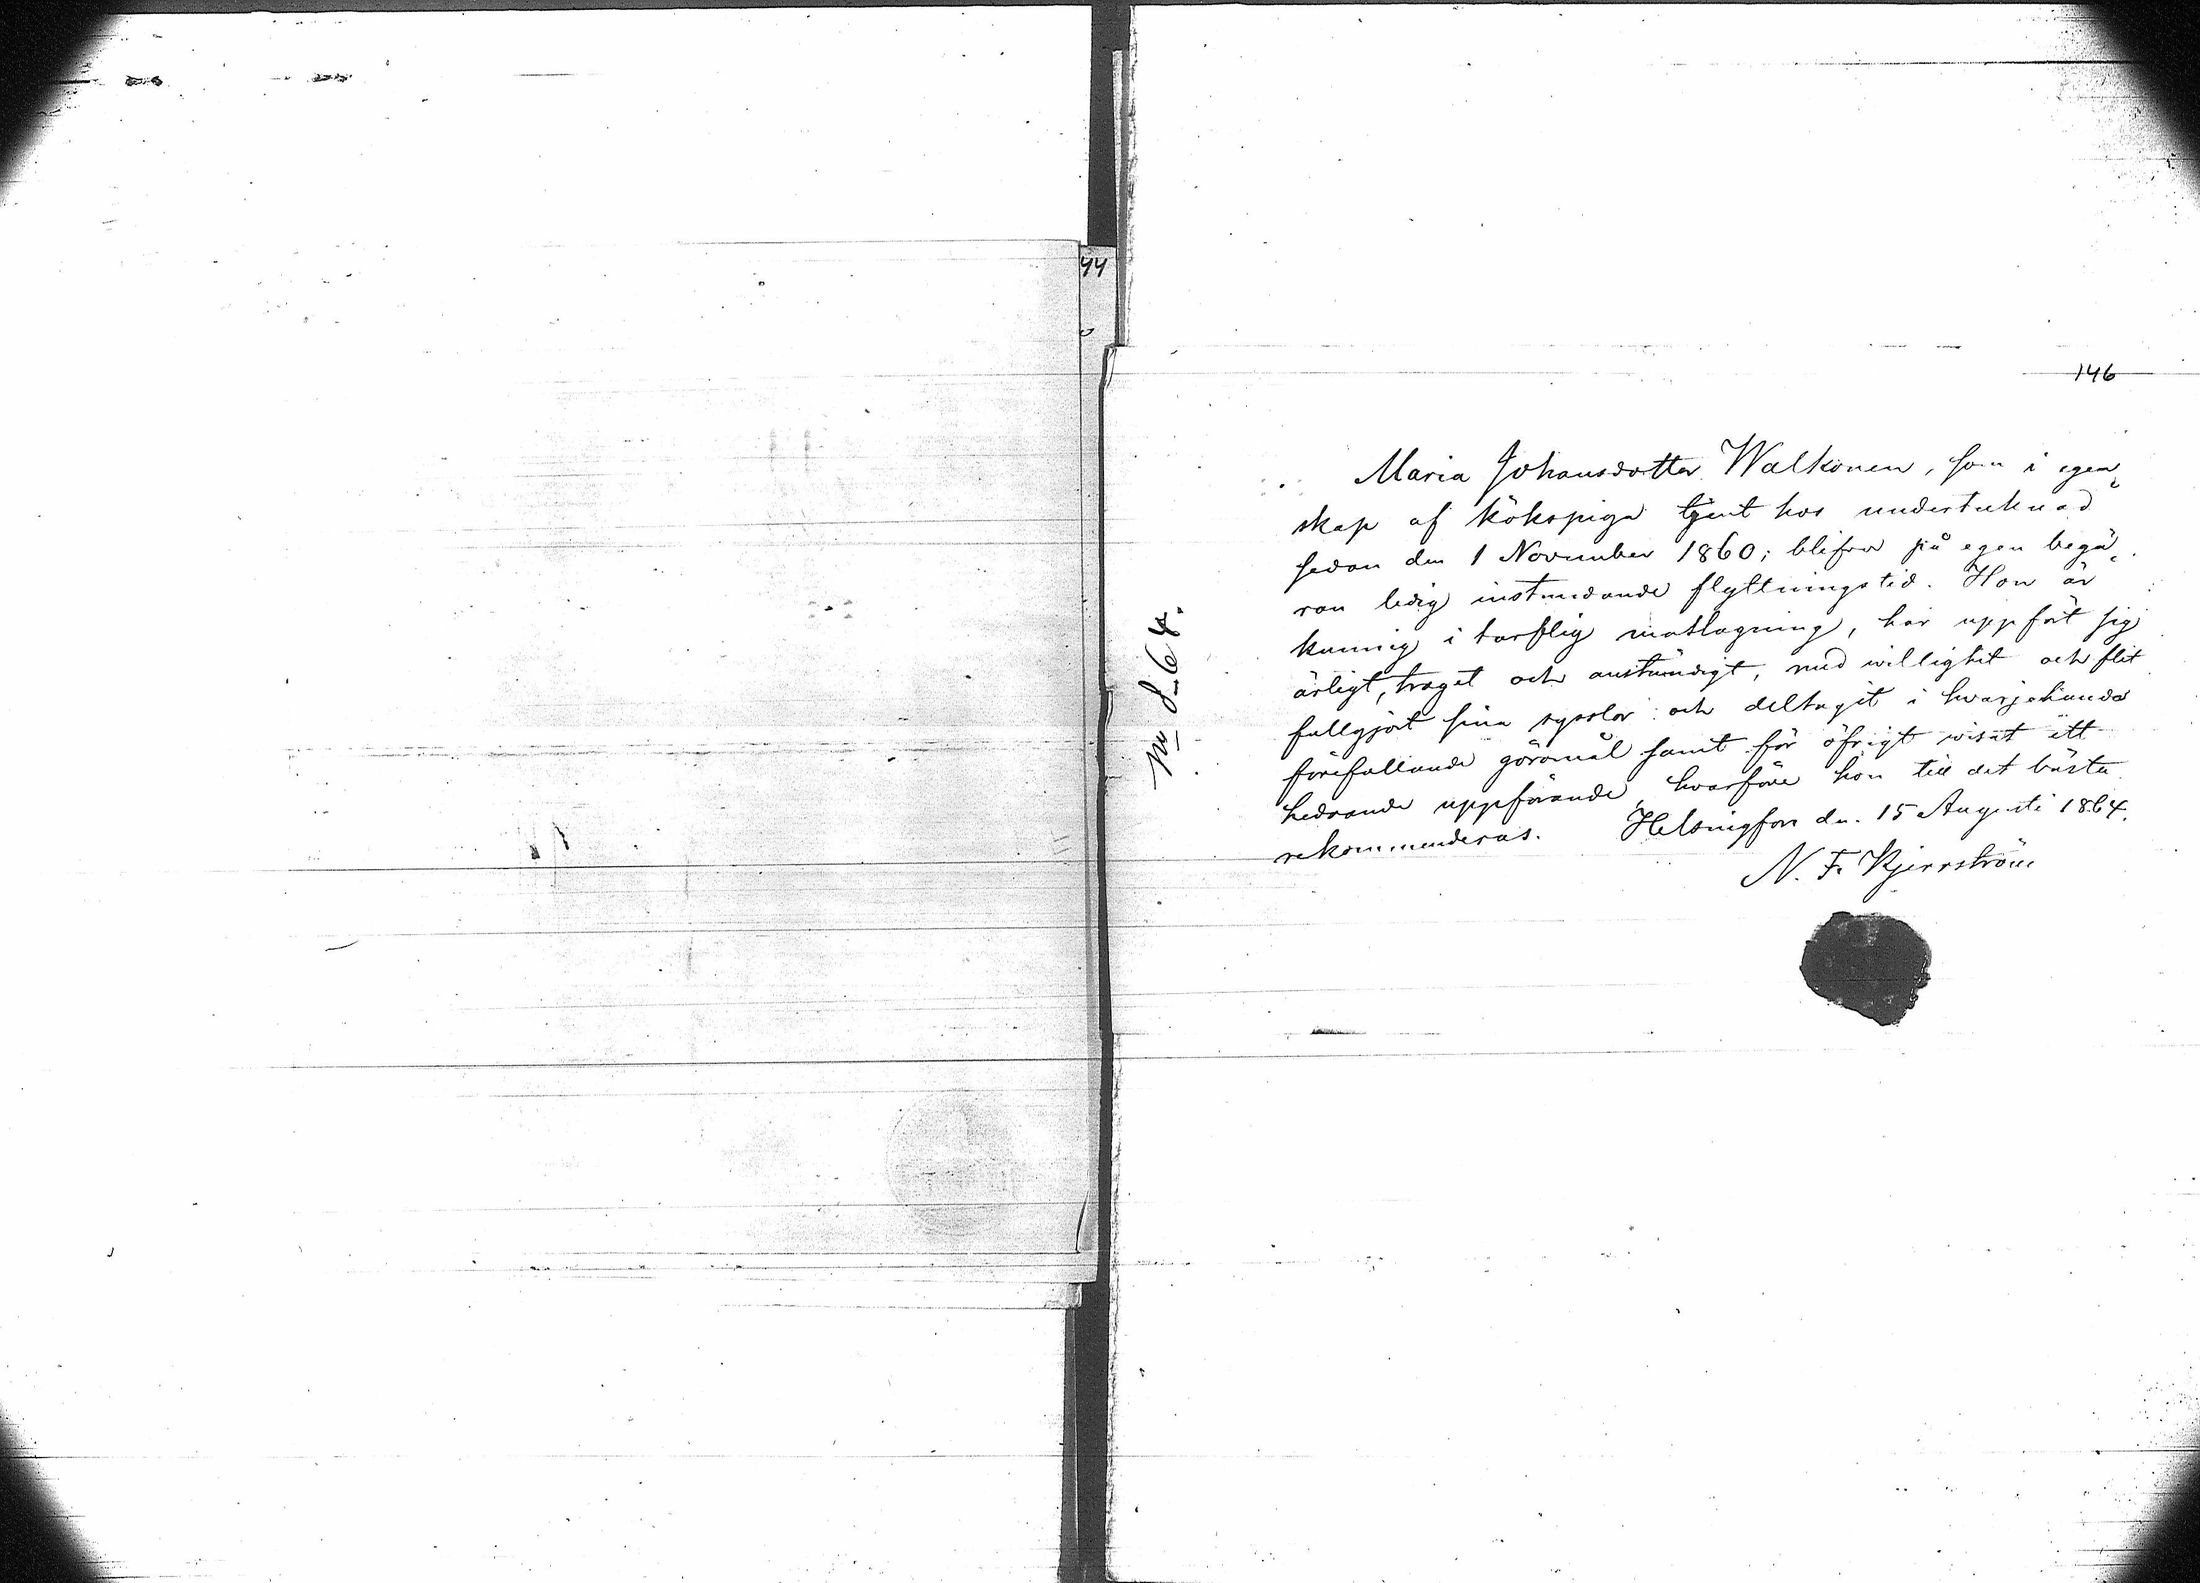 44
146
No 8_64.
Maria Johansdotter Walkonen, som i egen„
skap af kökspiga tjent hos undertecknad
sedan den 1 November 1860; blifver på egen begä„
ran ledig instundande flyttningstid. Hon är
kunnig i tarflig matlagning, har uppfört sig
ärligt, troget och anständigt, med willighet och flit
fullgjort sina sysslor och deltagit i hvarjehanda
förefallande göromål samt för öfrigt wisat ett
hedrande uppförande, hvarföre hon till det bästa
rekommenderas. Helsingfors den 15 Augusti 1864.
N. F. Kjerrström